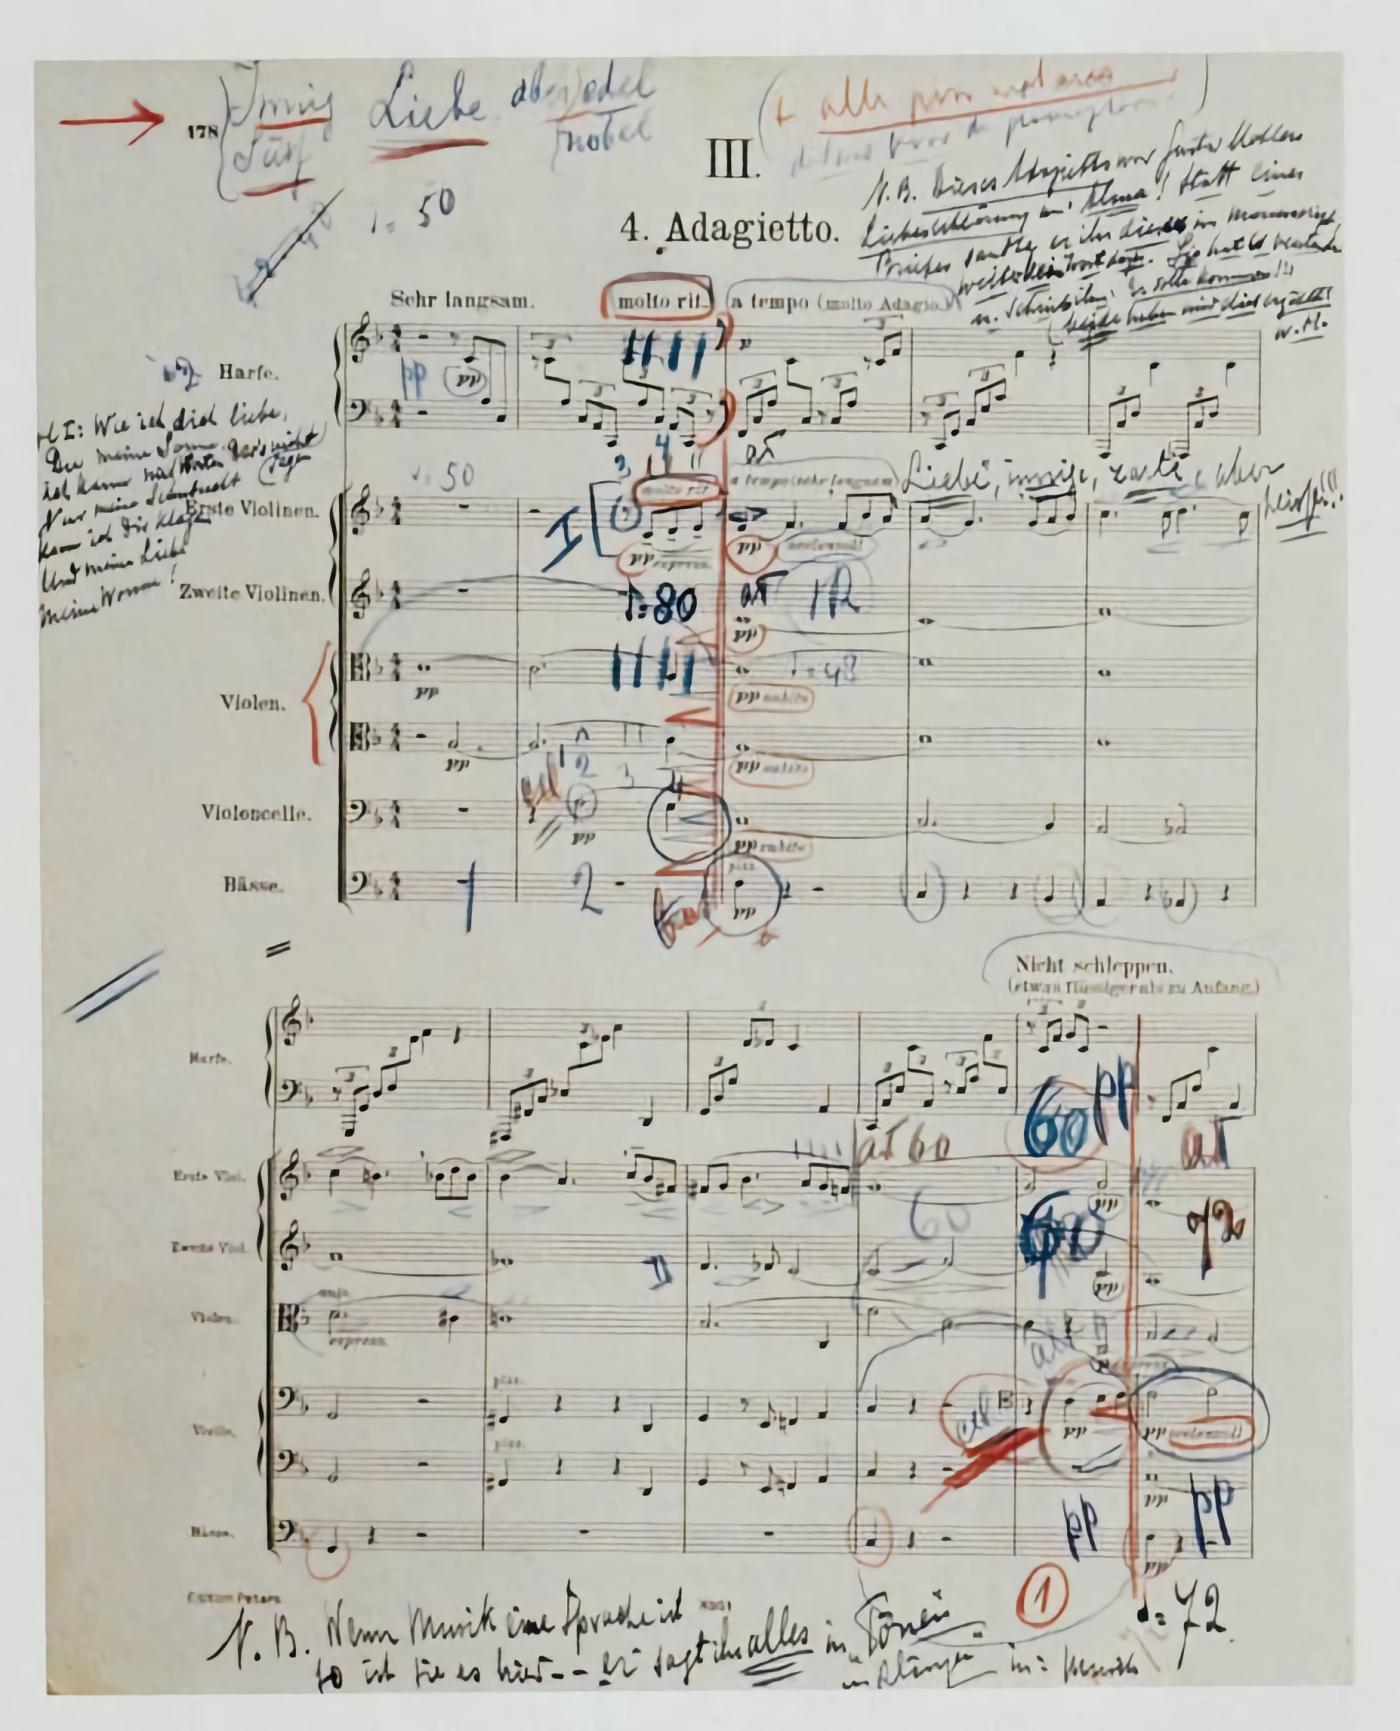 178
Innig
Liebe
aber edel
nobel
Süß
III.
4. Adagietto.
= 50
N. B. Dieses Adagietto war Gustav Mahlers
Liebeserklärung an Alma! Statt eines
Briefes sandte er ihr dieses im Manuscript
weiter kein Wort dazu. Sie hat es verstanden
u. schrieb ihm: Er solle kommen!!!
beide haben mir dies erzählt!
W. M.
Sehr langsam.
molto rit.
a tempo (molto Adagio)
Harfe.
pp
pp
I: Wie ich dich liebe,
Du meine Sonne
ich kann mit Worten Dir's nicht
sagen
Nur meine Sehnsucht
kann ich Dir klagen
Und meine Liebe
meine Wonne!
50
3 4
molto rit.
a tempo (sehr langsam)
Liebe, innige, zarte, aber
Erste Violinen.
I
pp espress.
pp
seelenvoll
Zweite Violinen.
= 80
aT
pp
Violen.
pp
= 48
pp subito
pp
pp subito
1 2 3 4
Violoncelle.
pp
pp subito
Bässe.
1 2
pizz.
pp
Nicht schleppen.
(etwas flüssiger als zu Anfang.)
Harfe.
60
pp
aT 60
aT
Erste Viol.
60
pp
72
Zweite Viol.
60
pp
Violen.
espress.
pizz.
cel
pp
pp seelenvoll
Vcelle.
pizz.
pp
pp
pp
Bässe.
pp
Edition Peters
1
= 72
N. B. Wenn Musik eine Sprache ist
so ist sie es hier -- er sagt ihr alles in Tönen